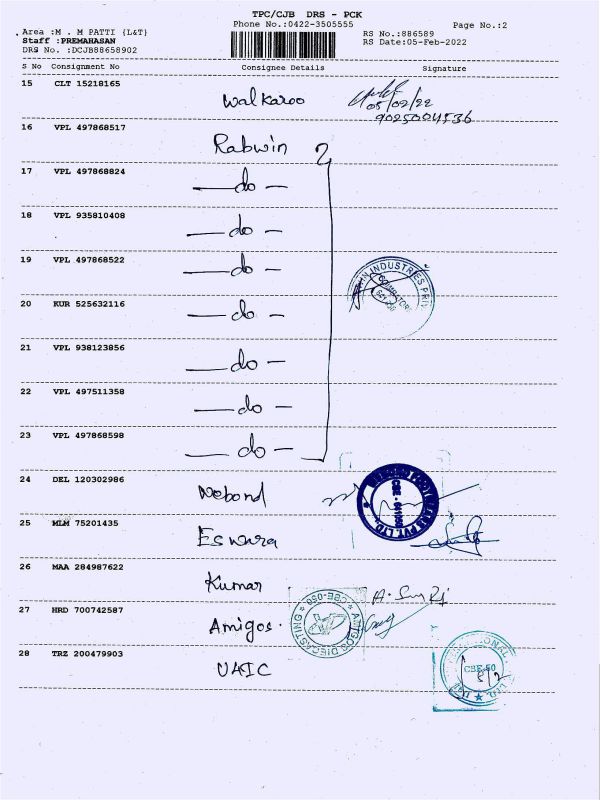 TPC/CJB DRS - PCK
Phone No.:0422-3505555
Page No.:2
Area :M . M PATTI {L&T}
Staff :PREMAHASAN
DRS No. :DCJB88658902
RS No.:886589
RS Date:05-Feb-2022
S No Consignment No Consignee Details Signature
15 CLT 15218165
Walkaroo
05/02/22
9025004536
16 VPL 497868517
Rabwin
17 VPL 497868824
—do—
18 VPL 935810408
—do—
19 VPL 497868522
—do—
INDUSTRIES PRI
20 KUR 525632116
—do—
21 VPL 938123856
—do—
22 VPL 497511358
—do—
23 VPL 497868598
—do—
24 DEL 120302986
Webond
PVT. LTD.
25 MLM 75201435
Eswara
26 MAA 284987622
Kumar
27 HRD 700742587
Amigos.
AMIGOS DIECASTING
28 TRZ 200479903
UAIC
CBE-50